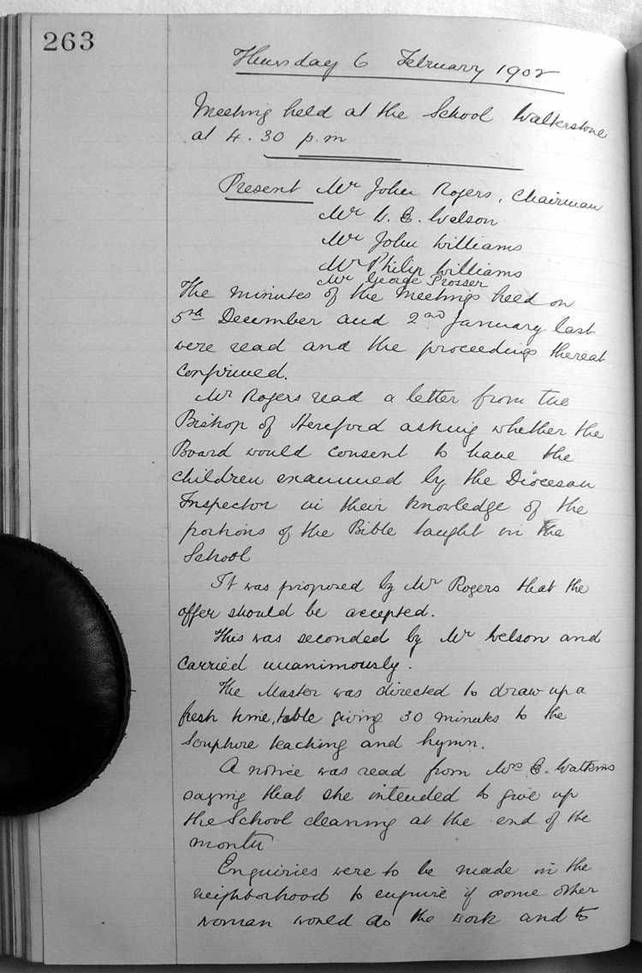 263
Thursday 6 February 1902
Meeting held at the School Walterstone
at 4.30 p.m
Present Mr John Rogers, Chairman
Mr W. E. Welson
Mr John Williams
Mr Philip Williams
Mr George Prosser
The minutes of the Meetings held on
5th December and 2nd January last
were read and the proceedings thereat
confirmed.
Mr Rogers read a letter from the
Bishop of Hereford asking whether the
Board would consent to have the
children examined by the Diocesan
Inspector in their knowledge of the
portions of the Bible taught in the
School
It was proposed by Mr Rogers that the
offer should be accepted.
This was seconded by Mr Welson and
carried unanimously.
The Master was directed to draw up a
fresh time, table giving 30 minutes to the
Scripture teaching and hymn.
A notice was read from Mrs E. Watkins
saying that she intended to give up
the School cleaning at the end of the
month
Enquiries were to be made in the
neighborhood to enquire if some other
woman would do the work and to